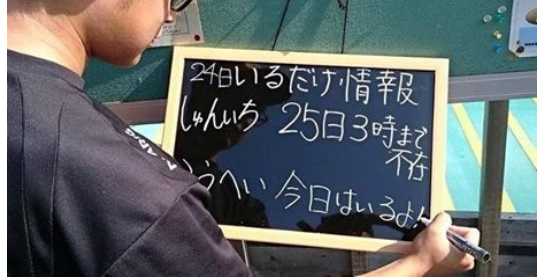 24日いるだけ情報
しゅんいち 25日3時まで
不在
うへい 今日はいるよ